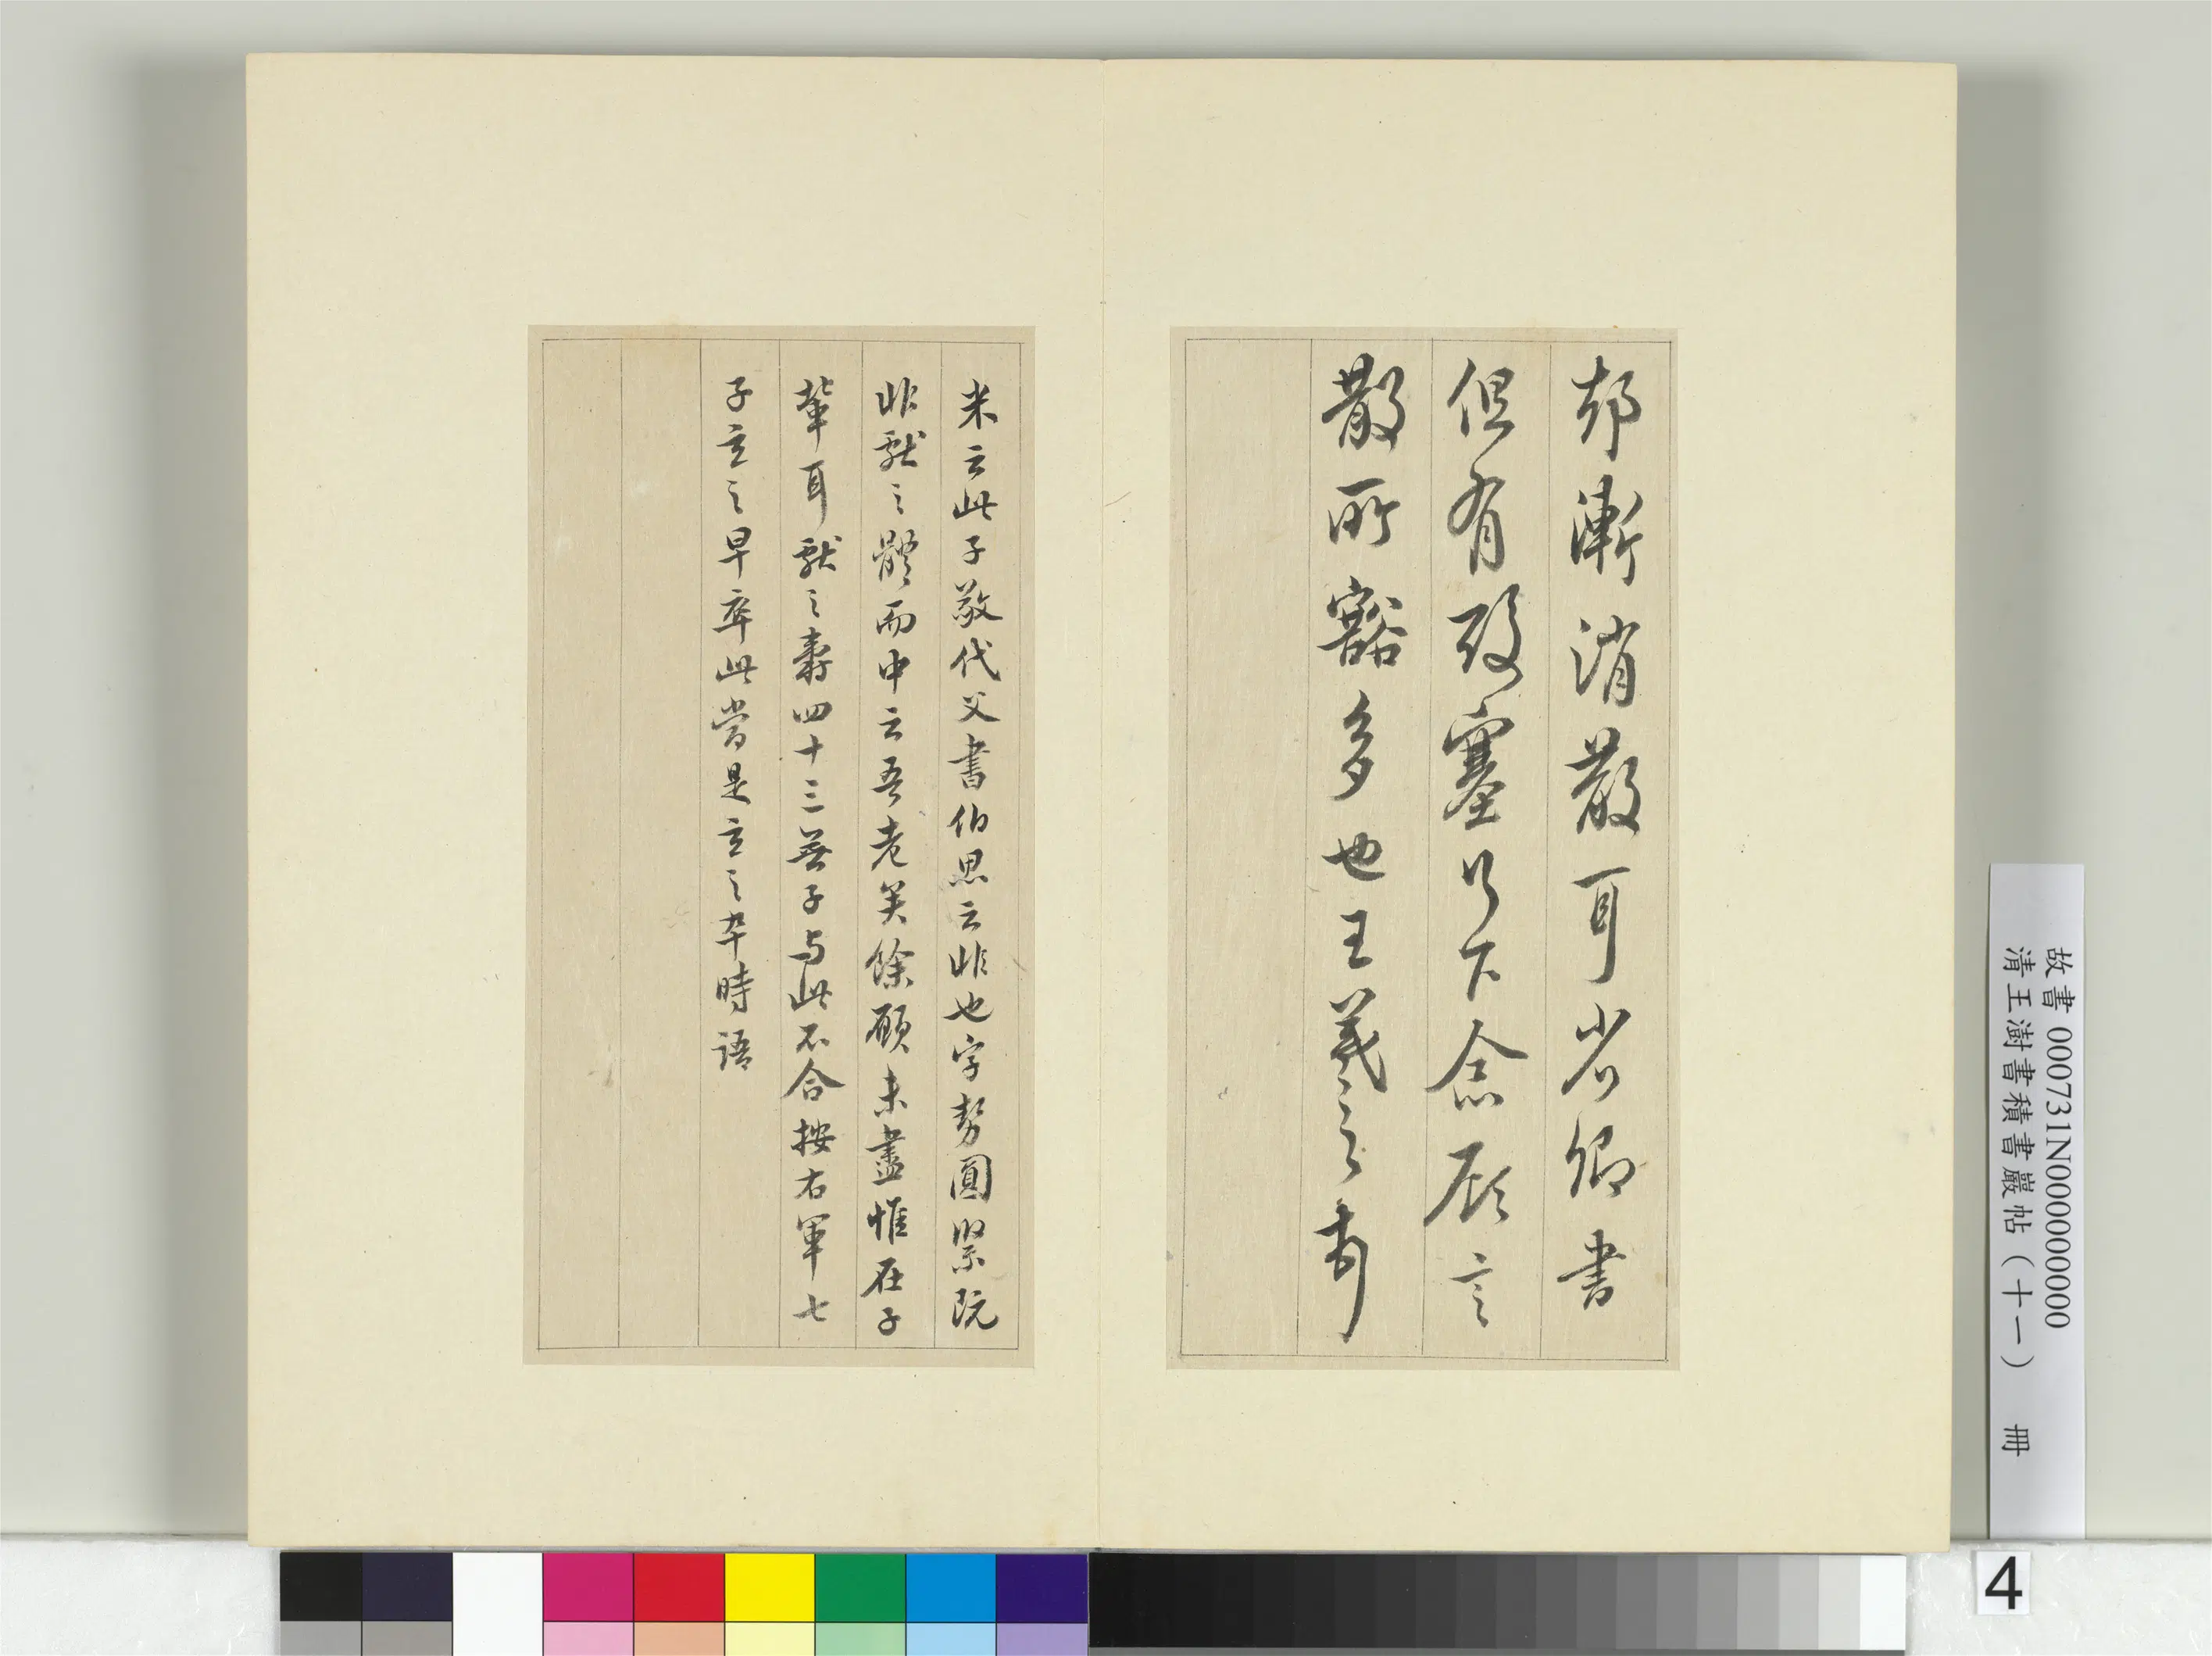 却漸消散耳省卿書
但有酸塞足下念顧言
散所豁多也王羲之頓
米云此子敬代父書伯思云非也字勢圓緊既
非獻之體而中云吾老矣餘願未盡惟在子
輩耳獻之壽四十三無子與此不合按右軍七
子玄之早卒此當是玄之卒時語
故書 000731N000000000
清王澍書積書巖帖(十一) 冊
4